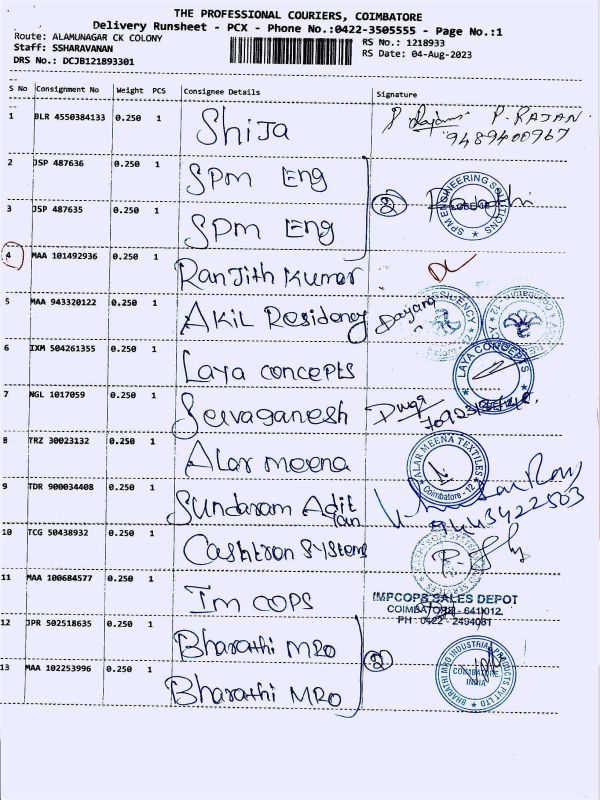 THE PROFESSIONAL COURIERS, COIMBATORE
Delivery Runsheet - PCX - Phone No.:0422-3505555 - Page No.:1
Route: ALAMUNAGAR CK COLONY
RS No.: 1218933
Staff: SSHARAVANAN
RS Date: 04-Aug-2023
DRS No.: DCJB121893301
S No Consignment No Weight PCS Consignee Details Signature
1 BLR 4550384133 0.250 1 Shija P. RAJAN
9489400967
2 JSP 487636 0.250 1 SPm Eng
SPM ENGINEERING SOLUTIONS
3 JSP 487635 0.250 1 SPm Eng
4 MAA 101492936 0.250 1 Ranjith Kumar
5 MAA 943320122 0.250 1 Akil Residency
6 IXM 504261355 0.250 1 Laya concepts
LAYA CONCEPTS
7 NGL 1017059 0.250 1 Selvaganesh
8 TRZ 30023132 0.250 1 Alar meena
ALAR MEENA TEXTILES
Coimbatore - 12
9 TDR 900034408 0.250 1 Sundaram
9443422503
10 TCG 50438932 0.250 1 Cashtron Systems
11 MAA 100684577 0.250 1 Im COPS
IMPCOPS SALES DEPOT
COIMBATORE - 641012
PH : 0422 - 2494081
12 JPR 502518635 0.250 1 Bharathi MRO
2
13 MAA 102253996 0.250 1 Bharathi MRO
BHARATHI MRO INDUSTRIAL PRODUCTS PVT LTD
COIMBATORE
INDIA